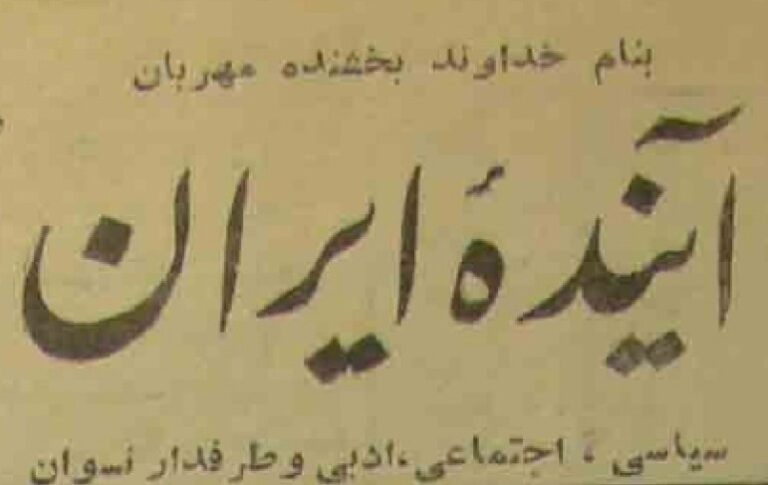 بنام خداوند بخشنده مهربان
آیندهٔ ایران
سیاسی ، اجتماعی،ادبی وطرفدار نسوان